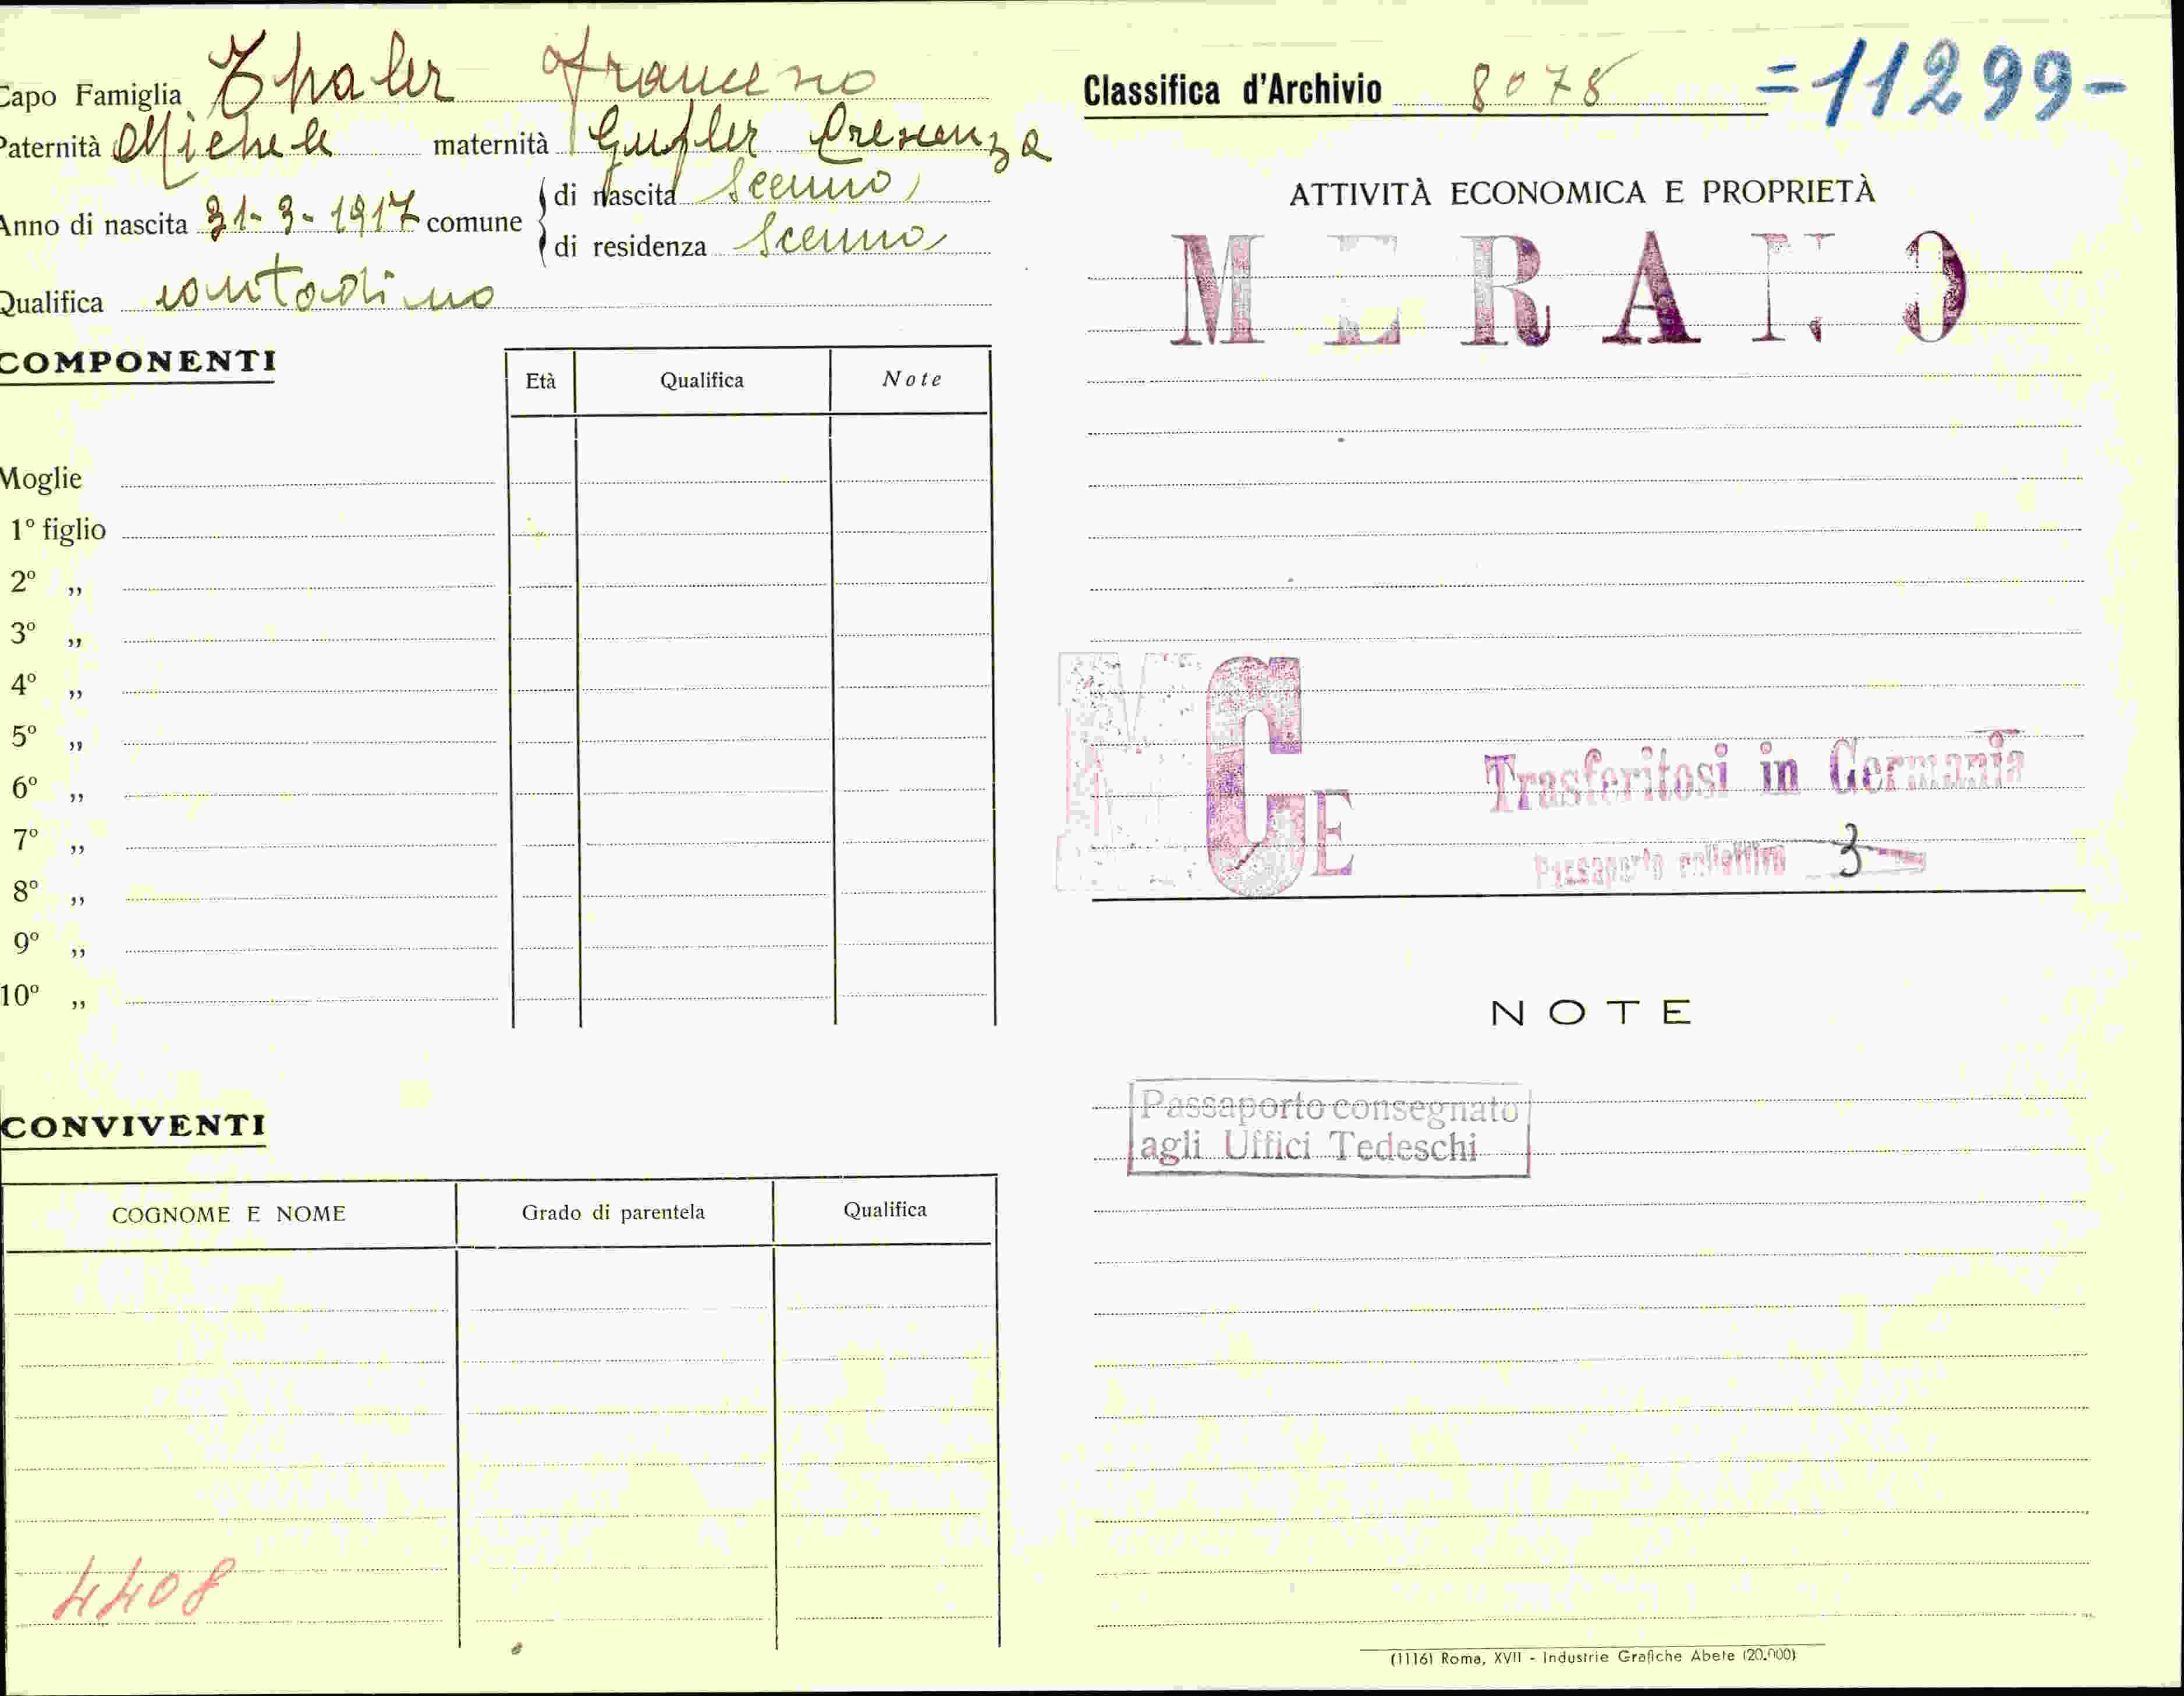 Capo Famiglia Thaler Francesco
Paternità Michele maternità Gufler Crescenza
Anno di nascita 31-3-1917 comune di nascita Scenna,
di residenza Scenna
Qualifica contadino
COMPONENTI
Età Qualifica Note
Moglie
1º figlio
2º „
3º „
4º „
5º „
6º „
7º „
8º „
9º „
10º „
CONVIVENTI
COGNOME E NOME Grado di parentela Qualifica
4408
Classifica d'Archivio 8078 =11299-
ATTIVITÀ ECONOMICA E PROPRIETÀ
MERANO
M G E
Trasferitosi in Germania
Passaporto collettivo 3
NOTE
Passaporto consegnato
agli Uffici Tedeschi
(1116) Roma, XVII - Industrie Grafiche Abete (20.000)